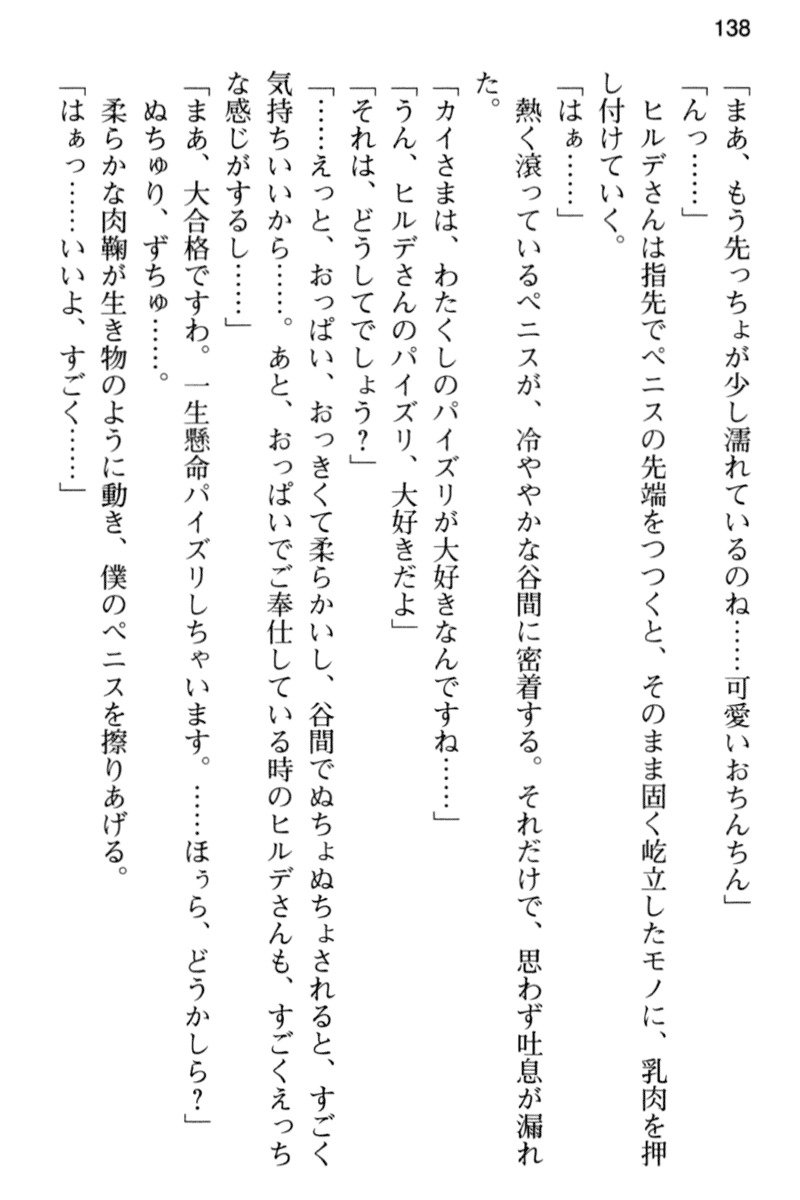 138
「まあ、もう先っちょが少し濡れているのね……可愛いおちんちん」
「んっ……」
　ヒルデさんは指先でペニスの先端をつつくと、そのまま固く屹立したモノに、乳肉を押
し付けていく。
「はぁ……」
　熱く滾っているペニスが、冷ややかな谷間に密着する。それだけで、思わず吐息が漏れ
た。
「カイさまは、わたくしのパイズリが大好きなんですね……」
「うん、ヒルデさんのパイズリ、大好きだよ」
「それは、どうしてでしょう？」
「……えっと、おっぱい、おっきくて柔らかいし、谷間でぬちょぬちょされると、すごく
気持ちいいから……。あと、おっぱいでご奉仕している時のヒルデさんも、すごくえっち
な感じがするし……」
「まあ、大合格ですわ。一生懸命パイズリしちゃいます。……ほぅら、どうかしら？」
　ぬちゅり、ずちゅ……。
　柔らかな肉鞠が生き物のように動き、僕のペニスを擦りあげる。
「はぁっ……いいよ、すごく……」